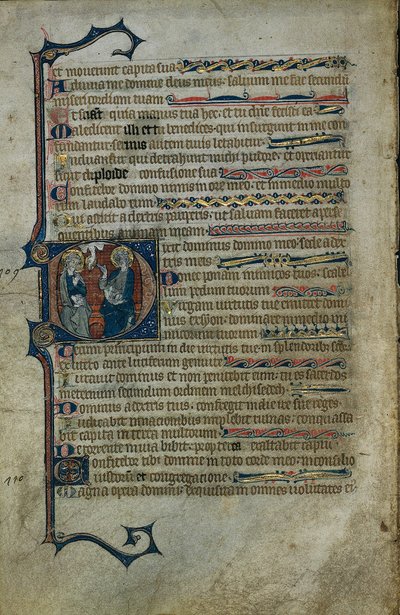 et moverunt capita sua
Adiuva me domine deus meus: salvum me fac secundum
misericordiam tuam
Et sciant quia manus tua hec: et tu domine fecisti ea
Maledicent illi et tu benedices: qui insurgunt in me con
fundantur servus autem tuus letabitur
Induantur qui detrahunt michi pudore: et operiantur
sicut diploide confusione sua
Confitebor domino nimis in ore meo: et in medio multo
rum laudabo eum
Qui astitit a dextris pauperis: ut salvam faceret a perse
quentibus animam meam
Dixit dominus domino meo: sede adex
tris meis
109
Donec ponam inimicos tuos: scabel
lum pedum tuorum
Virgam virtutis tue emittet domi
nus ex syon: dominare in medio ini
micorum tuorum
Tecum principium in die virtutis tue in splendoribus sanctorum:
ex utero ante luciferum genui te
Iuravit dominus et non penitebit eum: tu es sacerdos
in eternum secundum ordinem melchisedech
Dominus a dextris tuis: confregit in die ire sue reges
Iudicabit in nacionibus implebit ruinas: conquassa
bit capita in terra multorum
De torrente in via bibit: propterea exaltabit caput
110
Confitebor tibi domine in toto corde meo: in consilio
iustorum et congregatione
Magna opera domini: exquisita in omnes voluntates ei